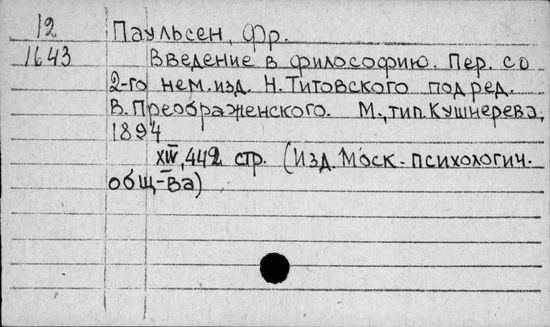 12
1643
Паульсен, Фр.
Введение в философию. Пер. со
2-го нем. изд. Н. Титовского под ред.
В. Преображенского. М., тип. Кушнерева,
1894
XIV, 442 стр. (Изд. Моск. психологич.
общ-ва)